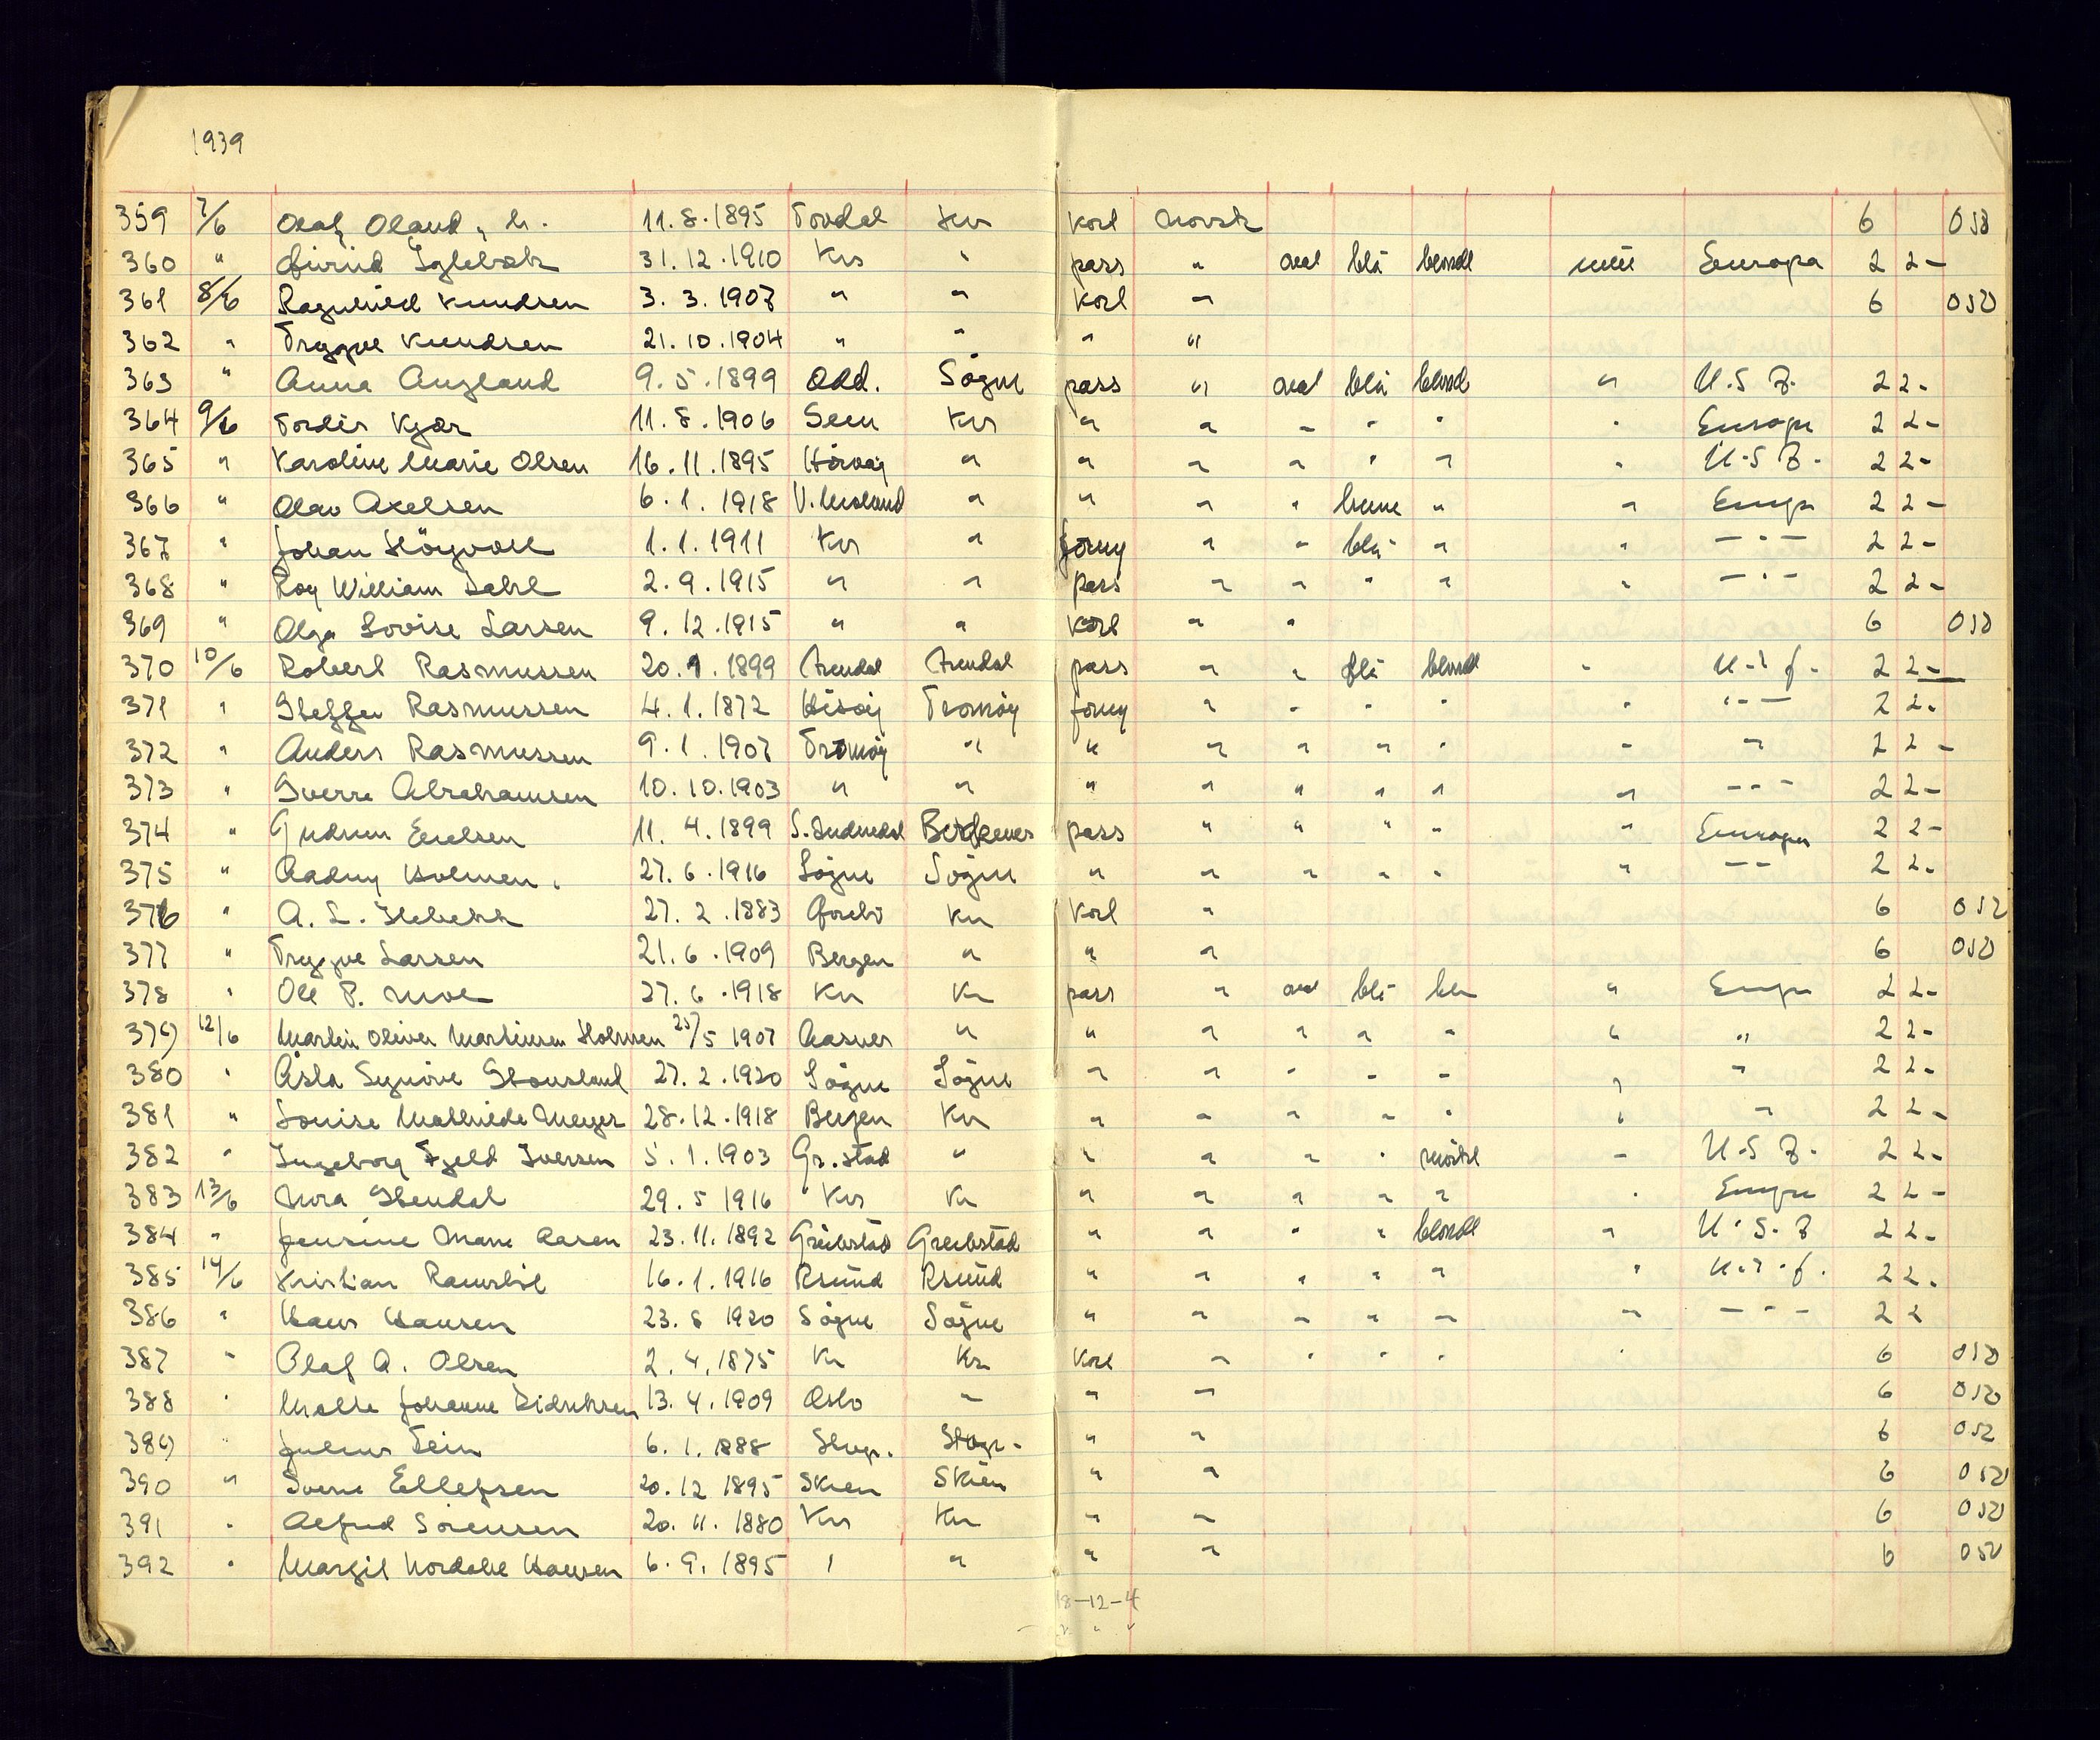 1939
359 7/6 Olaf Oland, 11.8.1895 Tovdal Krs Kort norsk 6 050
360 " Eivind Iglebæk 31.12.1910 Krs " pass " oval blå blondt Europa 2 2-
361 8/6 Ragnhild Knudsen 3.3.1907 " " Kort " 6 050
362 " Trygve Knudsen 21.10.1904 " " " "
363 " Anna Augland 9.5.1899 Odd. Søgne pass " oval blå blond " U.S.A. 2 2-
364 9/6 Tordis Kjær 11.8.1906 Sem Krs " " " " " " Europa 2 2-
365 " Karoline Marie Olsen 16.11.1895 " " " " " " " U.S.A. 2 2-
366 " Olav Axelsen 6.1.1918 " " " " brune " " Europa 2 2-
367 " Johan Höyvoll 1.1.1911 Krs " forny " " blå " " -"- 2 2-
368 " Roy William Dahl 2.9.1915 " " pass " " " " " -"- 2 2-
369 " Olga Lovise Larsen 9.12.1915 " " Kort " " 6 050
370 10/6 Robert Rasmussen 20.9.1899 Arendal Arendal pass " " blå blondt " 2 2-
371 " Steffen Rasmussen 4.1.1872 Hisöy Tromöy forny " " " " " "-- 2 2-
372 " Anders Rasmussen 9.1.1907 Tromöy " " " " " " " " 2 2-
373 " Sverre Abrahamsen 10.10.1903 " " " " " " " " --- 2 2-
374 " Gudrun Emilsen 11.4.1899 S. Audnedal pass " " " " " Europa 2 2-
375 " Aadny Holmen. 27.6.1916 Søgne Søgne " " " " " " -- 2 2-
376 " A. L. 27.2.1883 Kr Kort " 6 052
377 " Trygve Larsen 21.6.1909 Bergen " " " 6 050
378 " Ole P. Moe 27.6.1918 Kr Kr pass " oval blå bl " Europa 2 2-
379 12/6 Martin Oliver Martinsen Holmen 25/5 1907 " " " " " " " " 2 2-
380 " Åsta Synöve Stousland 27.2.1920 Søgne Søgne " " " " " " " 2 2-
381 " Louise Mathilde Meyer 28.12.1918 Bergen Kr " " " " " " " 2 2-
382 " Ingeborg Fjeld Iversen 5.1.1903 Gr.stad " " " " " mörkt " U.S.A. 2 2-
383 13/6 Nora Stendal 29.5 1916 Krs Kr " " " " " " Europa 2 2-
384 " Jensine Marie Aasen 23.11.1892 Greibstad Greibstad " " " " blondt " U.S.A 2 2-
385 14/6 Kristian 16.1.1916 Rsund Rsund " " " " " " 2 2-
386 " Hans Hansen 23.8 1920 Søgne Søgne " " " " " " -"- 2 2
387 " Olaf A. Olsen 2.4.1875 Kr Kr Kort " " " " " 6 050
388 " Johanne Didriksen 13.4.1909 Oslo " " " 6 050
389 " Julius Fein 6.1.1888 " " 6 052
390 " Sverre Ellefsen 20.12 1895 Skien Skien " " 6 050
391 " Alfred Sörensen 20.11.1880 Krs Kr " " 6 050
392 " Margit Nordahl Hansen 6.9.1895 " " " " 6 050
18-12-4